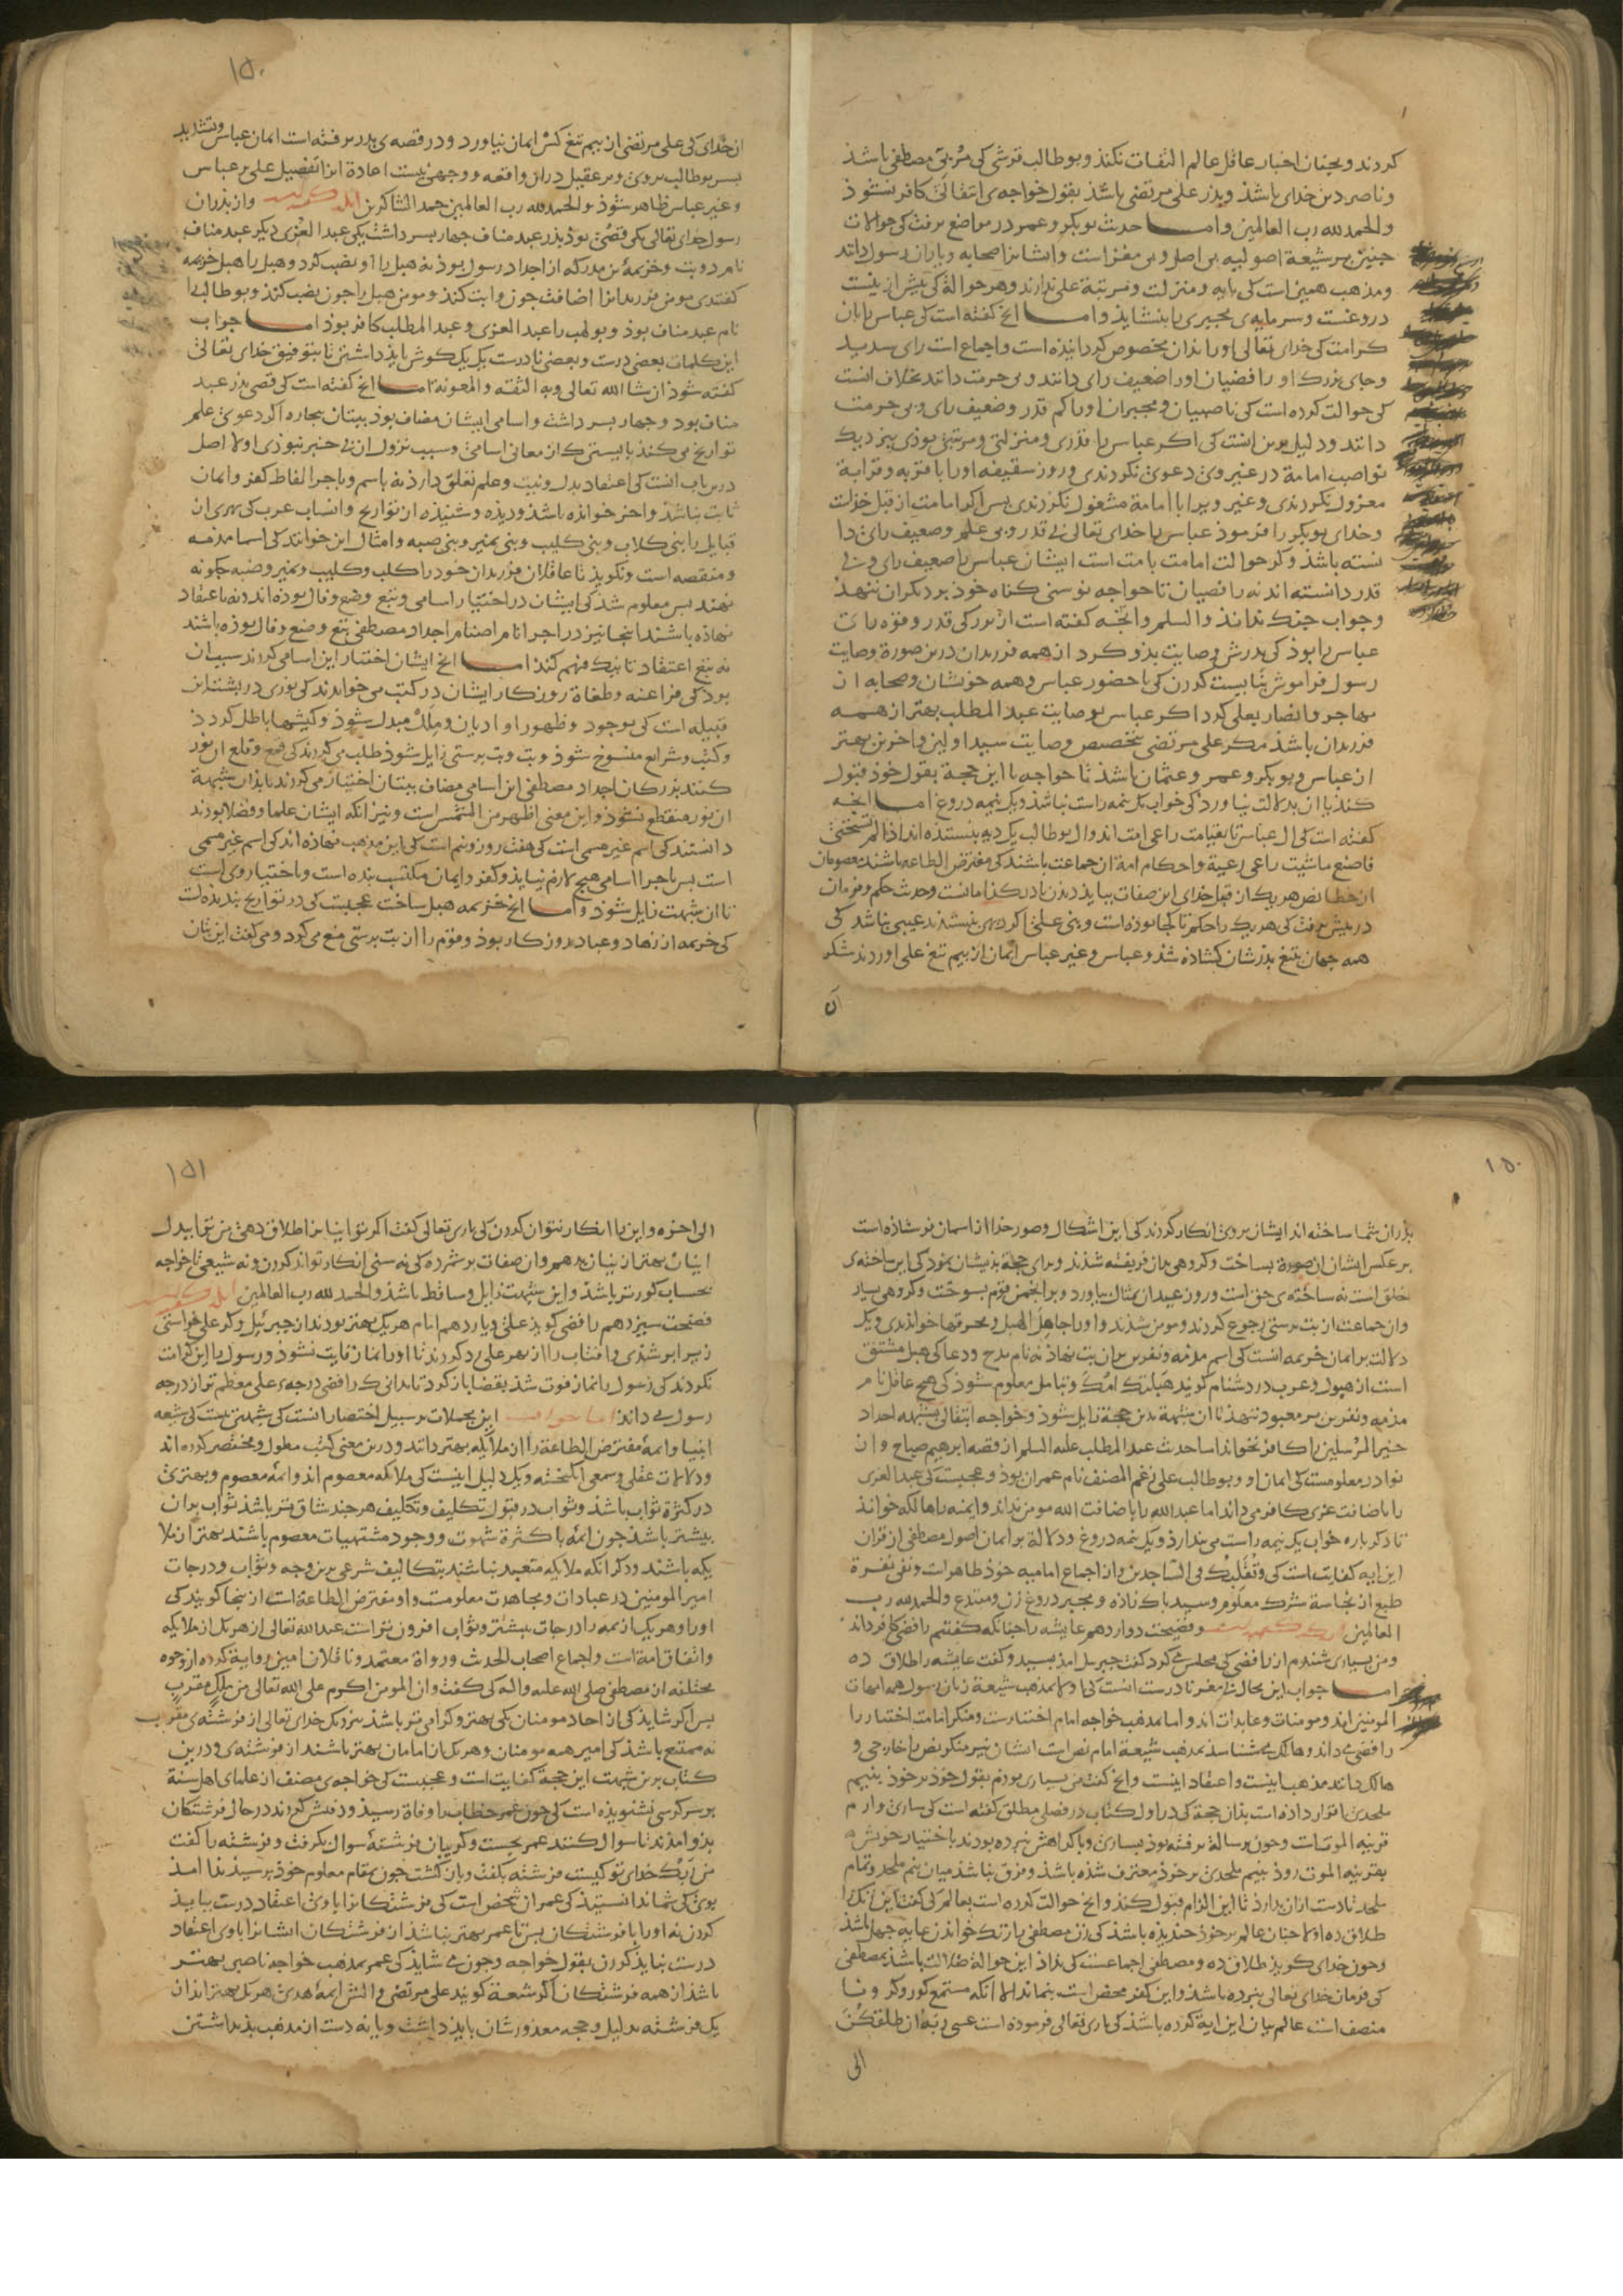 کردند و بجنان اخبار عاقل عالم التفات نکند و بوطالب قرشی کی مربی مصطفی باشد
و ناصر دین خدای باشد و پدر علی مرتضی باشد بقول خواجه‌ی انتقالی کافر بنشود
والحمدلله رب العالمین و اما حدیث بوبکر و عمر در مواضع برفت کی حوالات
جنین بر شیعة اصولیه بی اصل و بی مغز است و ایشانرا صحابه و یاران رسول دانند
و مذهب همین است کی پایه و منزلت و مرتبة علی ندارند و هر حوالة کی بیش ازینست
دروغست و سرمایه‌ی مجبری را بنشاید و اما انج کفته است کی عباس را بآن
کرامت کی خدای تعالی او را بدان مخصوص کردانیده است و اجماع است رای سدید
و جای بزرک او رافضیان او را ضعیف رای دانند و بی حرمت دانند بخلاف آنست
کی حوالت کرده است کی ناصبیان و مجبران او را کم قدر و ضعیف رای و بی حرمت
دانند و دلیل برین آنست کی اکر عباس را قدری و منزلتی و مرتبتی بودی بنزدیک
نواصب امامة در غیر وی دعوی نکردندی و روز سقیفه او را با قربه و قرابة
معزول نکردندی و غیر ویرا با امامة مشغول نکردندی بس اکر امامت از قبل خداست
و خدای بوبکر را فرمود عباس را خدای تعالی بی قدر و بی علم و ضعیف رای دا
نسته باشد و کر حوالت امامت بامت است ایشان عباس را ضعیف رای و بی
قدر دانسته اند نه رافضیان تا خواجه نوسنی کناه خود بر دیکران ننهد
و جواب جنک نداند والسلم و آنجه کفته است از بزرکی قدر و قوه رای
عباس را بود کی پدرش وصایت بدو کرد از همه فرزندان درین صورة وصایت
رسول فراموش نبایست کردن کی با حضور عباس و همه خویشان و صحابه از
مهاجر و انصار بعلی کرد اکر عباس بوصایت عبدالمطلب بهتر از همه
فرزندان باشد مکر علی مرتضی بتخصیص وصایت سید اولین و آخرین بهتر
از عباس و بوبکر و عمر و عثمان باشد تا خواجه با این حجة بقول خود قبول
کند یا آن بدلالت نیاورد کی خواب یک نیمه راست نباشد و یک نیمه دروغ اما آنجه
کفته است کی آل عباس تا بقیامت راعی امت اند و آل بوطالب یک دیه بنستده اند اذا لم تستحی
فاصنع ماشیت راعی رعیة و احکام امة آن جماعت باشند کی مفترض الطاعه باشند معصومان
از خطا نص هر یک از قبل خدای این صفات بباید
در بیش برفت کی هر یک را حکم تا کجا بوده است و بنی علی اکر دیهی بنستدند عیبی نباشد کی
همه جهان بتیغ بدرشان کشاده شد و عباس و غیر عباس ایمان از بیم تیغ علی آوردند شکر
آن
۱۵۰
آن خدای کی علی مرتضی از بیم تیغ کس ایمان نیاورد و در قصه‌ی بدر برفته است ایمان عباس و تشدید
بسر بوطالب بروی و بر عقیل در آن واقعه و وجهی نیست اعادة آنرا تفضیل علی بر عباس
و غیر عباس ظاهر شود والحمدلله رب العالمین حمد الشاکرین و از بدران
رسول خدای تعالی یکی قصی بود بدر عبد مناف جهار بسر داشت یکی عبد العزی دیکر عبد مناف
نام دو بت و خزیمة بن مدرکه از اجداد رسول بود نه هبل را او نصب کرد و هبل را هبل خزیمه
کفتندی مومن فرزندانرا اضافت جون وا بت کند و مومن هبل را جون نصب کند و بوطالب را
نام عبد مناف بود و بولهب را عبد العزی و عبد المطلب کافر بود اما جواب
این کلمات بعضی درست و بعضی نادرست یک یک کوش باید داشتن تا بتوفیق خدای تعالی
کفته شود ان شا الله تعالی وبه الثقه والمعونة اما انج کفته است کی قصی بدر عبد
مناف بود و جهار بسر داشت و اسامی ایشان مضاف بود ببتان بیجاره اکر دعوی علم
تواریخ می کند بایستی کی از معانی اسامی و سبب نزول آن بی خبر نبودی اولا اصل
درین باب آنست کی اعتقاد بدل و نیت و علم تعلق دارد نه باسم و باجرا الفاظ کفر و ایمان
ثابت نباشد و آخر خوانده باشد و دیده و شنیده از تواریخ و انساب عرب کی بهری از
قبایل را بنی کلاب و بنی کلیب و بنی نمیر و بنی ضبه و امثال این خوانند کی اسما مذمه
و منقصه است و نکوید تا عاقلان فرزندان خود را کلب و کلیب و نمیر و ضبه جکونه
نهند بس معلوم شد کی ایشان در اختیار اسامی و بتبع وضع و فال بوده اند نه باعتقاد
نهاده باشند اینجا نیز در اجرا نام اصنام اجداد مصطفی بتبع وضع و فال بوده باشند
نه بتبع اعتقاد تا نیک فهم کند اما انج ایشان اختیار این اسامی کردند سبب آن
بود کی فراعنه و طغاة روزکار ایشان در کتب می خواندند کی نوری در بشت این
قبیله است کی بوجود و ظهور او ادیان و ملل مبدل شود و کیشها باطل کردد
و کتب و شرایع منسوخ شود و بت و بت برستی زایل شود طلب می کردند کی قمع و قلع آن نور
کنند بزرکان اجداد مصطفی این اسامی مضاف ببتان اختیار می کردند تا بدان شبهة
آن نور منقطع نشود و این معنی اظهر من الشمس است و نیز آنکه ایشان علما و فضلا بودند
دانستند کی اسم غیر مسمی است
است بس باجرا اسامی هیج لازم نیاید و کفر و ایمان مکتسب بنده است و باختیار وی است
تا آن شبهت زایل شود و اما انج خزیمه هبل ساخت عجبست کی در تواریخ بندیده است
کی خزیمه از زهاد و عباد روزکار بود و قوم را از بت برستی منع می کرد و می کفت این بتان
۱۵۰
بدران شما ساخته اند ایشان بروی انکار کردند کی این اشکال و صور خدا از آسمان فرستاده است
بر عکس ایشان آن صورة بساخت و کروهی بدان فریفته شدند و برای حجة بدیشان نمود کی این ساخته‌ی
خلق است نه ساخته‌ی حق است و روز عید آن تمثال بیاورد و بر انجمن قوم بسوخت و کروهی بسیار
و آن جماعت از بت برستی رجوع کردند و مومن شدند و او را جاهل الهبل و محرقها خواندندی و یک
دلالت بر ایمان خزیمه آنست کی اسم مذمه و نفرین بر آن بت نهاد نه نام مدح و دعا کی هبل مشتق
است از هبول و عرب در دشنام کویند هبلتک امک و بتامل معلوم شود کی هیج عاقل نام
مذمه و نفرین بر معبود ننهد تا آن شبهة بدین حجة زایل شود و خواجه انتقالی بشبهه اجداد
خیر المرسلین را کافر نخواند اما حدیث عبد المطلب علیه السلم از قصه ابرهیم صباح و از
نوادر معلومست کی ایمان او و بوطالب علی رغم المصنف نام عمران بود و عجبست کی عبد العزی
را باضافت عزی کافر می داند اما عبد الله را باضافت الله مومن نداند و آمنه را هالکه خواند
تا دکر باره خواب یک نیمه راست می بندارد و یک نیمه دروغ و دلالة بر ایمان اصول مصطفی از قران
این آیه کفایت است کی و تقلبک فی الساجدین و از اجماع امامیه خود ظاهر است و نفی نفرة
طبع از نجاسة شرک معلوم و سید باک زاده و مجبر دروغ زن و مبتدع والحمدلله رب
العالمین و فضیحت دوازدهم عایشه را جنانکه کفتیم رافضی کافر داند
و من بسیاری شنیدم از رافضی کی مجلس می کرد کفت جبریل آمد بسید و کفت عایشه را طلاق ده
اما جواب این محال بی مغز نادرست آنست کی اولا بمذهب شیعة زنان رسول همه امهات
المومنین اند و مومنات و عابدات اند و اما بمذهب خواجه امام اختیارست و منکر امامت اختیار را
رافضی می داند و هالک می شناسد بمذهب شیعة امام نص است ایشان نیز منکر نص را خارجی و
هالک دانند مذهب اینست و اعتقاد اینست و انج کفت من بسیاری بودم بقول خود بر خود بنیم
ملحدی اقرار داده است بدان حجة کی در اول کتاب در فصلی مطلق کفته است کی ساری و ارم
قرینه الموتست و جون برسالة برفته بود بساری و باکراهش نبرده بودند باختیار خویش
بقرینه الموت رود بنیم ملحدی بر خود معترف شده باشد و فرق نباشد میان نیم ملحد و تمام
ملحد تا دست از آن بدارد تا این الزام قبول کند و انج حوالت کرده است بعالم کی کفت این زنک را
طلاق ده اولا جنان عالم بر خود خندیده باشد کی زن مصطفی را زنک خواند از غایة جهل باشد
و جون خدای کوید طلاق ده و مصطفی اجماعست کی نداد این حوالة ضلالت باشد بمصطفی
کی فرمان خدای تعالی نبرده باشد و این کفر محض است بنماند الا آنکه مستمع کور و کر و نا
منصف است عالم بیان این آیة کرده باشد کی باری تعالی فرموده است عسی ربه ان طلقکن
الی
۱۵۱
الی آخره و این را انکار نتوان کردن کی باری تعالی کفت اکر تو اینانرا طلاق دهی من ترا بدل
اینان بهتر از اینان بدهم و آن صفات برشمرده کی نه سنی انکار تواند کردن و نه شیعی تا خواجه
بحساب کورتر باشد و این شبهت زایل و ساقط باشد والحمد لله رب العالمین
فضیحت سیزدهم رافضی کوید علی و یازدهم امام هر یک بهتر بودند از جبرئیل و کر علی خواستی
زبر ابر شدی و آفتاب را از بهر علی رد کردند تا او را نماز فایت نشود و رسول را این کرامت
نکردند کی رسول را نماز فوت شد بقضا باز کرد تا بدانی کی رافضی درجه‌ی علی معظم تر از درجه
رسول می داند اما جواب این محملات بر سبیل اختصار آنست کی شبهتی نیست کی شیعه
انبیا و ائمة مفترض الطاعة را از ملائکه بهتر دانند و درین معنی کتب مطول و مختصر کرده اند
و دلالات عقلی و سمعی انکیخته و یک دلیل اینست کی ملائکه معصوم اند و ائمه معصوم و بهتری
در کثرة ثواب باشد و ثواب در قبول تکلیف و تکلیف هر جند شاق تر باشد ثواب بر آن
بیشتر باشد جون ائمه با کثرة شهوت و وجود مشتهیات معصوم باشند بهتر از ملا
یکه باشند و دکر آنکه ملایکه متعبد نباشند بتکالیف شرعی برین وجه و ثواب و درجات
امیر المومنین در عبادات و مجاهدت معلومست و او مفترض الطاعة است از ینجا کویند کی
او را و هر یک از ائمه را درجات بیشتر و ثواب افزون تر است عند الله تعالی از هر یک از ملایکه
و اتفاق امة است و اجماع اصحاب الحدیث و رواة معتمد و ناقلان امین روایة کرده از وجوه
مختلفه از مصطفی صلی الله علیه و اله کی کفت و ان المومن اکرم علی الله تعالی من ملک مقرب
بس اکر شاید کی از آحاد مومنان یکی بهتر و کرامی تر باشد بنزدیک خدای تعالی از فرشته‌ی مقرب
نه ممتنع باشد کی امیر همه مومنان و هر یک از امامان بهتر باشند از فرشته‌ی و درین
کتاب برین شبهت این حجة کفایت است و عجبست کی خواجه‌ی مصنف از علمای اهل سنة
بر سر کرسی نشنویده است کی جون عمر خطاب را وفاة رسید و دفنش کردند در حال فرشتکان
بدو آمدند تا سوال کنند عمر بجست و کریبان فرشتة سوال بکرفت و فرشته را کفت
من ربک خدای تو کیست فرشته بکفت و باز کشت جون بمقام معلوم خود برسید ندا آمد
بوی کی شما ندانستید کی عمر آن شخص است کی فرشتکانرا با وی اعتقاد درست بباید
کردن نه او را با فرشتکان بس تا عمر بهتر نباشد از فرشتکان ایشانرا با وی اعتقاد
درست نباید کردن بقول خواجه و جون می شاید کی عمر بمذهب خواجه ناصبی بهتر
باشد از همه فرشتکان اکر شیعة کویند علی مرتضی و آلش ائمة هدی هر یک بهتر اند از
یک فرشته بدلیل و حجه معذورشان باید داشت و یا نه دست از مذهب بد بداشتن